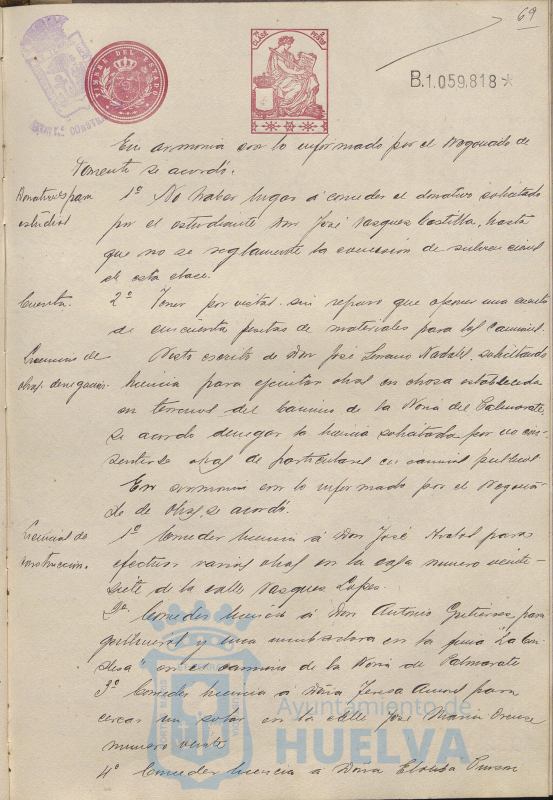 69
TIMBRE DEL ESTADO
B.1.059.818*
En armonia con lo informado por el Negociado de
Fomento se acordó.
Donativos para estudios
1º No haber lugar á conceder el donativo solicitado
por el estudiante Don José Vasques Castilla, hasta
que no se reglamente la concesión de subvenciones
de esta clase.
Cuenta.
2º Tener por vista sin reparo que oponer una cuenta
de cincuenta pesetas de materiales para los Caminos.
Licencias de obras denegación.
Visto escrito de Don José Lorano Nadales, solicitando
licencia para ejecutar obras en choza establecida
en terrenos del Camino de la Noria del Palmarate,
se acordo denegar la licencia solicitada por no con-
sentirse obras de particulares en caminos publicos.
En armonia con lo informado por el Negocia-
do de Obras, se acordó.
Licencias de construcción.
1º Conceder licencia á Don José para
efectuar varias obras en la casa numero veinte-
siete de la calle Vasques Lopes.
2º Conceder licencia á Don Antonio Gutierrez para
y una en la finca "La
" en el camino de la Noria de Palmarate
3º Conceder licencia á Doña Teresa para
cercar un solar en la calle José Maria Orense
numero veinte
4º Conceder licencia á Doña
Ayuntamiento de
HUELVA